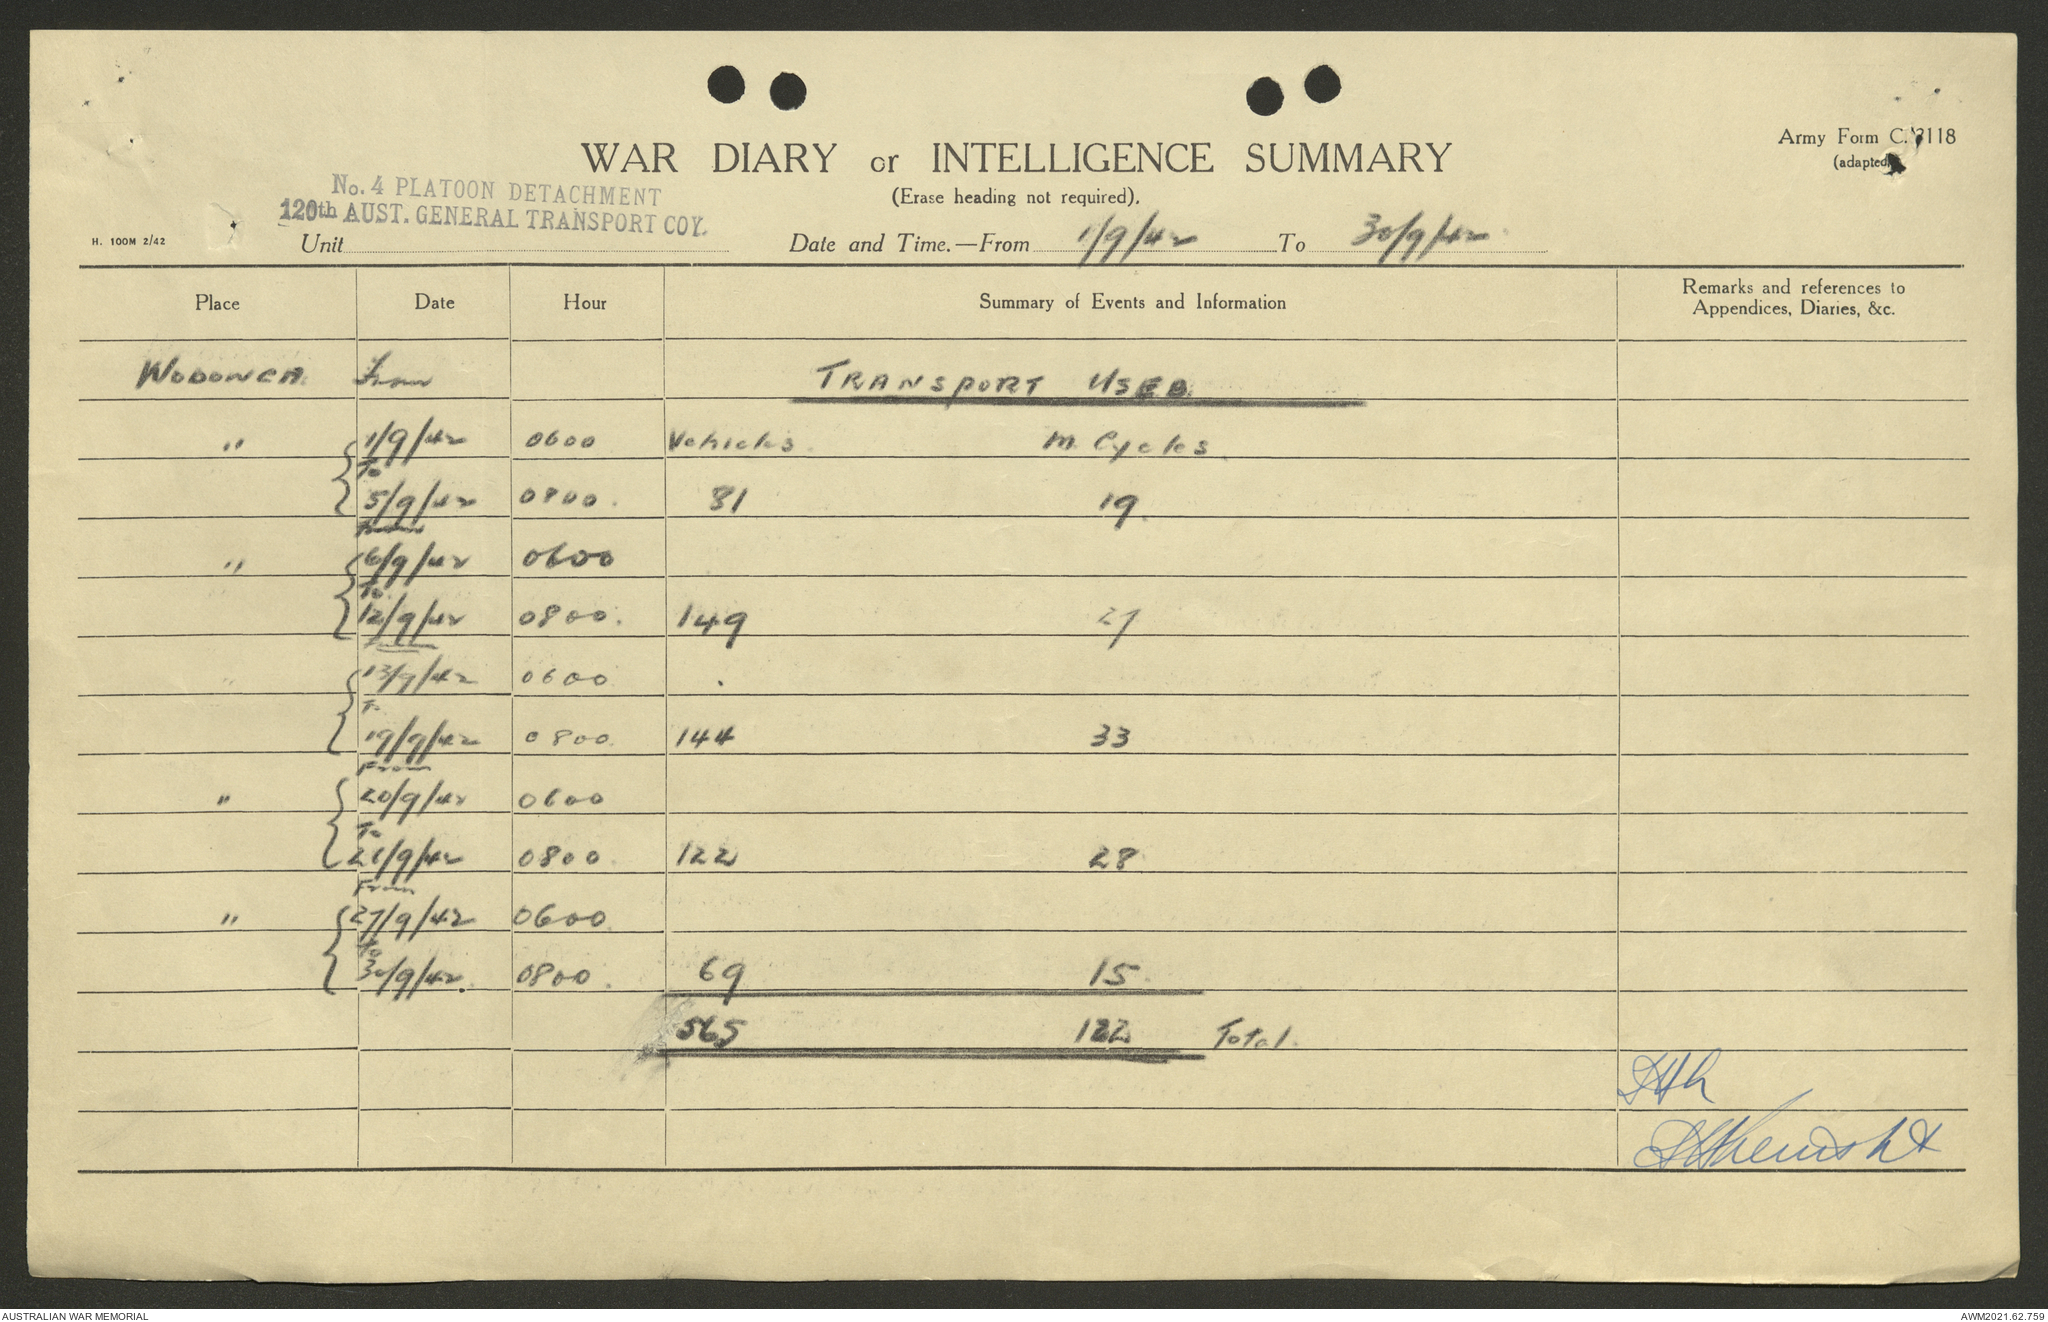 WAR DIARY or INTELLIGENCE SUMMARY
(Erase heading not required).
Army Form C. 2118
(adapted)
No. 4 PLATOON DETACHMENT
120th AUST. GENERAL TRANSPORT COY.
H. 100M 2/42
Unit
Date and Time.—From 1/9/42 To 30/9/42
Place Date Hour Summary of Events and Information Remarks and references to
Appendices, Diaries, &c.
WODONGA. From TRANSPORT USED.
" 1/9/42 0600 Vehicles. M. Cycles.
To
5/9/42 0800. 81 19.
From
" 6/9/42 0600
To
12/9/42 0800. 149 27
From
" 13/9/42 0600
To
19/9/42 0800 144 33
From
" 20/9/42 0600
To
26/9/42 0800. 122 28
From
" 27/9/42 0600
to
30/9/42. 0800. 69 15.
565 122 Total.
AUSTRALIAN WAR MEMORIAL
AWM2021.62.759